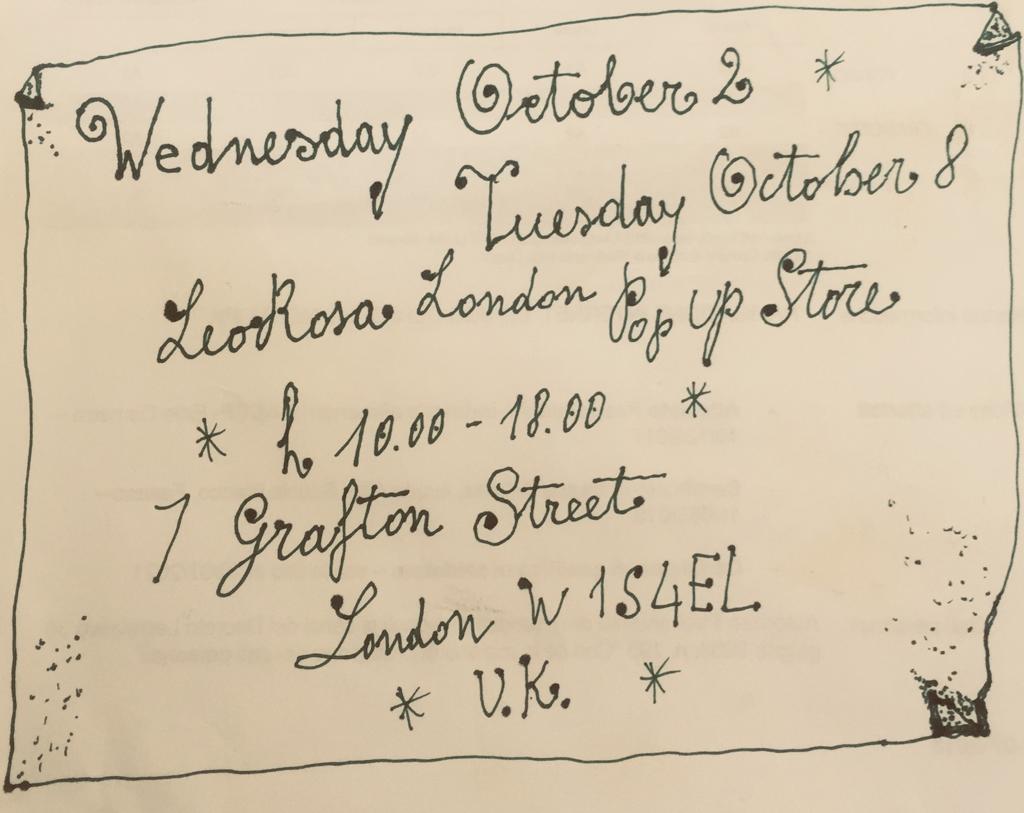 Wednesday October 2
Tuesday October 8
LeoRosa London Pop up Store
h 10.00 - 18.00
7 Grafton Street
London W1S4EL
U.K.